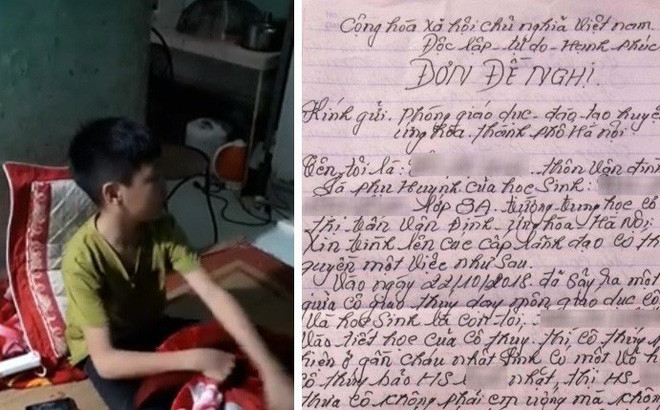 Cộng hòa xã hội chủ nghĩa Việt nam
Độc lập - tự do - Hạnh phúc
ĐƠN ĐỀ NGHỊ
Kính gửi. phòng giáo dục - đào tạo huyện
ứng hòa. thành phố Hà nội.
Tên tôi là: thôn Vân đình
Là phụ Huynh của học Sinh:
lớp 8A. trường trung học cơ
thị trấn Vân Đình - ứng hòa - Hà Nội
Xin trình lên các cấp lãnh đạo có th
quyền một việc như Sau.
Vào ngày 22/10/2018. đã Sảy ra một
giữa cô giáo thủy dạy môn giáo dục cô
Và học Sinh là con tôi.
Vào tiết học của cô thủy. thì cô thủy
hiện ở gần cháu nhất đình có một vỏ
cô thủy bảo HS nhất, thì HS
thưa cô không phải em uống mà khôn